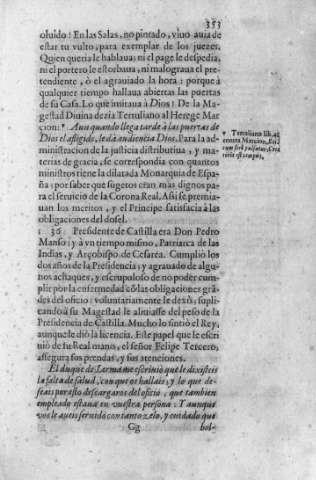 353
oluido! En las Salas, no pintado, viuo auia de
estar tu vulto, para exemplar de los juezes.
Quien queria le hablaua; ni el page le despedia,
ni el portero le estorbaua, ni malograua el pre-
tendiente, ò el agrauiado la hora: porque à
qualquier tiempo hallaua abiertas las puertas
de su Casa. Lo que imitaua à Dios! De la Ma-
gestad Diuina dezia Tertuliano al Herege Mar-
cion: Aun quando llega tarde à las puertas de
Dios el afligido, le dà audiencia Dios. Para la ad-
ministracion de la justicia distributiua, y ma-
terias de gracia, se correspondia con quantos
ministros tiene la dilatada Monarquia de Espa-
ña; por saber que sugetos eran mas dignos pa-
ra el seruicio de la Corona Real. Assi se premia-
uan los meritos, y el Principe satisfacia à las
obligaciones del dosel.
36 Presidente de Castilla era Don Pedro
Manso; y à vn tiempo mismo, Patriarca de las
Indias, y Arçobispo de Cesarea. Cumplio los
dos años de la Presidencia; y agrauado de algu-
nos achaques, y escrupuloso de no poder cum-
plir por la enfermedad cõ las obligaciones gra-
des del oficio; voluntariamente le dexò, supli-
cando à su Magestad le aliuiasse del peso de la
Presidencia de Castilla. Mucho lo sintio el Rey,
aunque le diò la licencia. Este papel que le escri-
uiò de su Real mano, el señor Felipe Tercero,
assegura sus prendas, y sus atenciones.
El duque de Lerma me escriuiò que le dixisteis
la falta de salud, con que os hallais; y lo que de-
seais por esto descargaros del oficio, que tambien
empleado estaua en vuestra persona: Y aunque
vos le aueis seruido con tanto zelo, y cuidado que
Gg bol-
Tertuliano lib. ad
contra Marcion,
cum serò pulsatur,